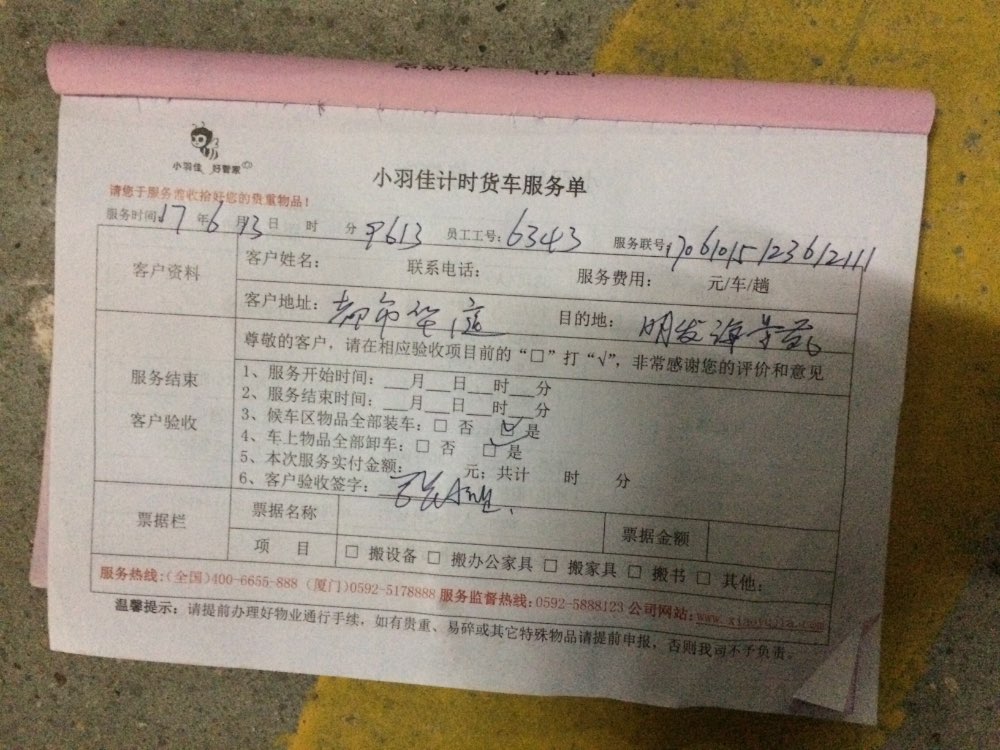 小羽佳 好管家
小羽佳计时货车服务单
请您于服务前收拾好您的贵重物品！
服务时间：17年6月13日 时 分 9613 员工工号：6343 服务联号：1706101512361211
客户资料
客户姓名： 联系电话： 服务费用： 元/车/趟
客户地址：都市华庭 目的地：明发海景苑
服务结束
客户验收
尊敬的客户，请在相应验收项目前的“□”打“√”，非常感谢您的评价和意见
1、服务开始时间：___月___日___时___分
2、服务结束时间：___月___日___时___分
3、候车区物品全部装车：□ 否 □是
4、车上物品全部卸车：□ 否 □是
5、本次服务实付金额： 元；共计 时 分
6、客户验收签字：
票据栏
票据名称 票据金额
项 目 □ 搬设备 □ 搬办公家具 □ 搬家具 □ 搬书 □ 其他：
服务热线：（全国）400-6655-888（厦门）0592-5178888 服务监督热线：0592-5888123 公司网站：www.xiaoyujia.com
温馨提示：请提前办理好物业通行手续，如有贵重、易碎或其它特殊物品请提前申报，否则我司不予负责。